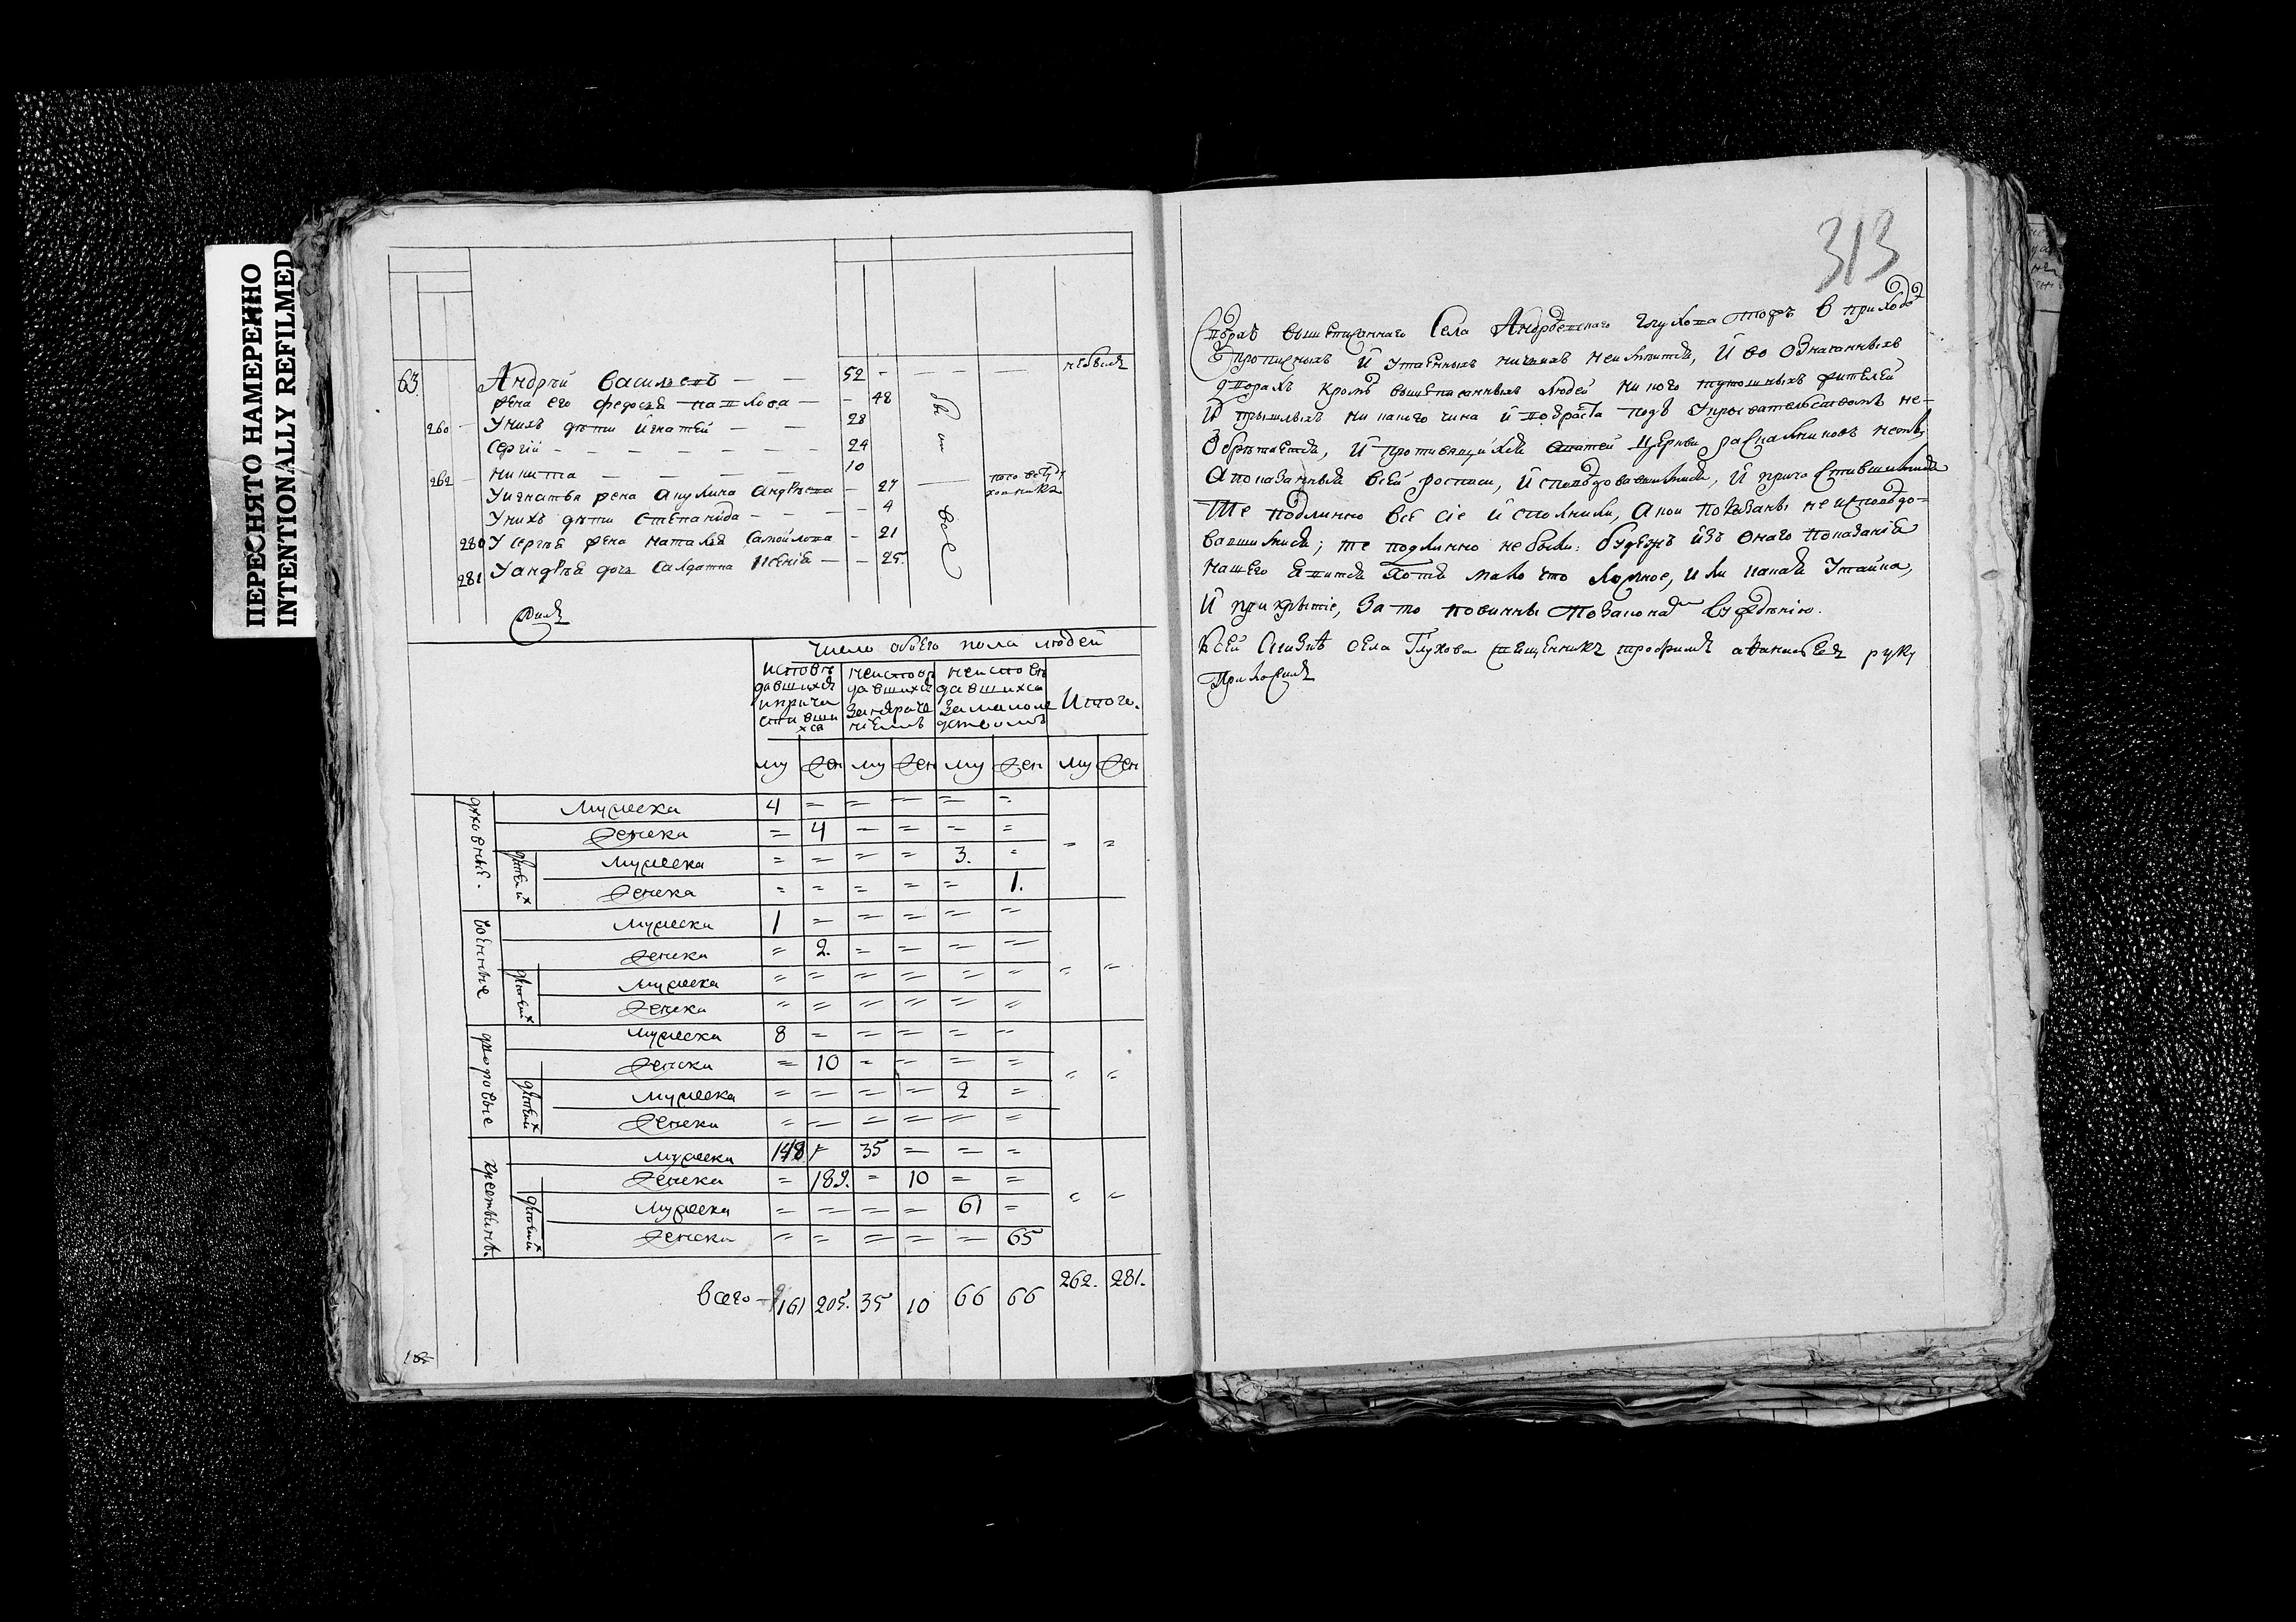 ПЕРЕСНЯТО НАМЕРЕННО
INTENTIONALLY REFILMED
63 Андрѣй Васильевъ — — 52 - — — — небылъ
жена его Федосья Павлова — - 48
260 — Унихъ дѣти Игнатей — — 28
Сергѣй — — — — — — 24
262 — Никита — — — — 10
Уигнатья жена Акулина Андрѣева - 27
Унихъ дѣти Степанида — — - 4
280 У Сергѣя жена Наталья Самойлова - 21
281 Уандрѣя дочь Салдатка Ксенія — - 25.
были
все
Число обоего пола людей
Исповѣ
давшихся
ипріча
стивши
хся
неисповѣ
давшихся
неисповѣ
давшихся
замало
лѣтствомъ
Итого.
му жен му жен му жен му жен
духовныя.
мужеска 4 = = = = =
женска = 4 = = = =
дѣтей их
мужеска = = = = 3. = = =
женска = = = = = 1.
военныя
мужеска 1 = = = = =
женска = 2. = = = =
дѣтей их
мужеска = = = = = = = =
женска = = = = = =
дворовые
мужеска 8 = = = = =
женска = 10 = = = =
дѣтей их
мужеска = = = = 2 = = =
женска = = = = = =
крестьянъ.
мужеска 148 = 35 = = =
женска = 189. = 10 = =
дѣтей их
мужеска = = = = 61 = = =
женска = = = = = 65
всего — 161 205. 35 10 66 66 262. 281.
313
вышеписаннаго Села Андрѣевскаго Глухова тожъ в приходѣ
прописныхъ и утаенныхъ никаких неимѣется, и во означенныхъ
дворахъ кромѣ вышеписанныхъ людей никого тутошныхъ жителей
и пришлыхъ никакого чина и возраста подъ укрывательствомъ не-
обрѣтается, и противящихся святей церкви раскольниковъ нетъ,
Апоказанныя всей росписи, и исповѣдовавшимися, и причастившимися
Те подлинно все сіе исполнили, Акои показаны не исповѣдо-
вавшимися; те подлинно не были: будежъ изъ онаго показанія
нашего явится хотя мало что ложное, или какая утайка,
и прикрытіе, за то повинны позаконамъ сужденію.
Ксей Сказкѣ села Глухова священникъ трофимъ аѳанасьевъ руку
Приложилъ